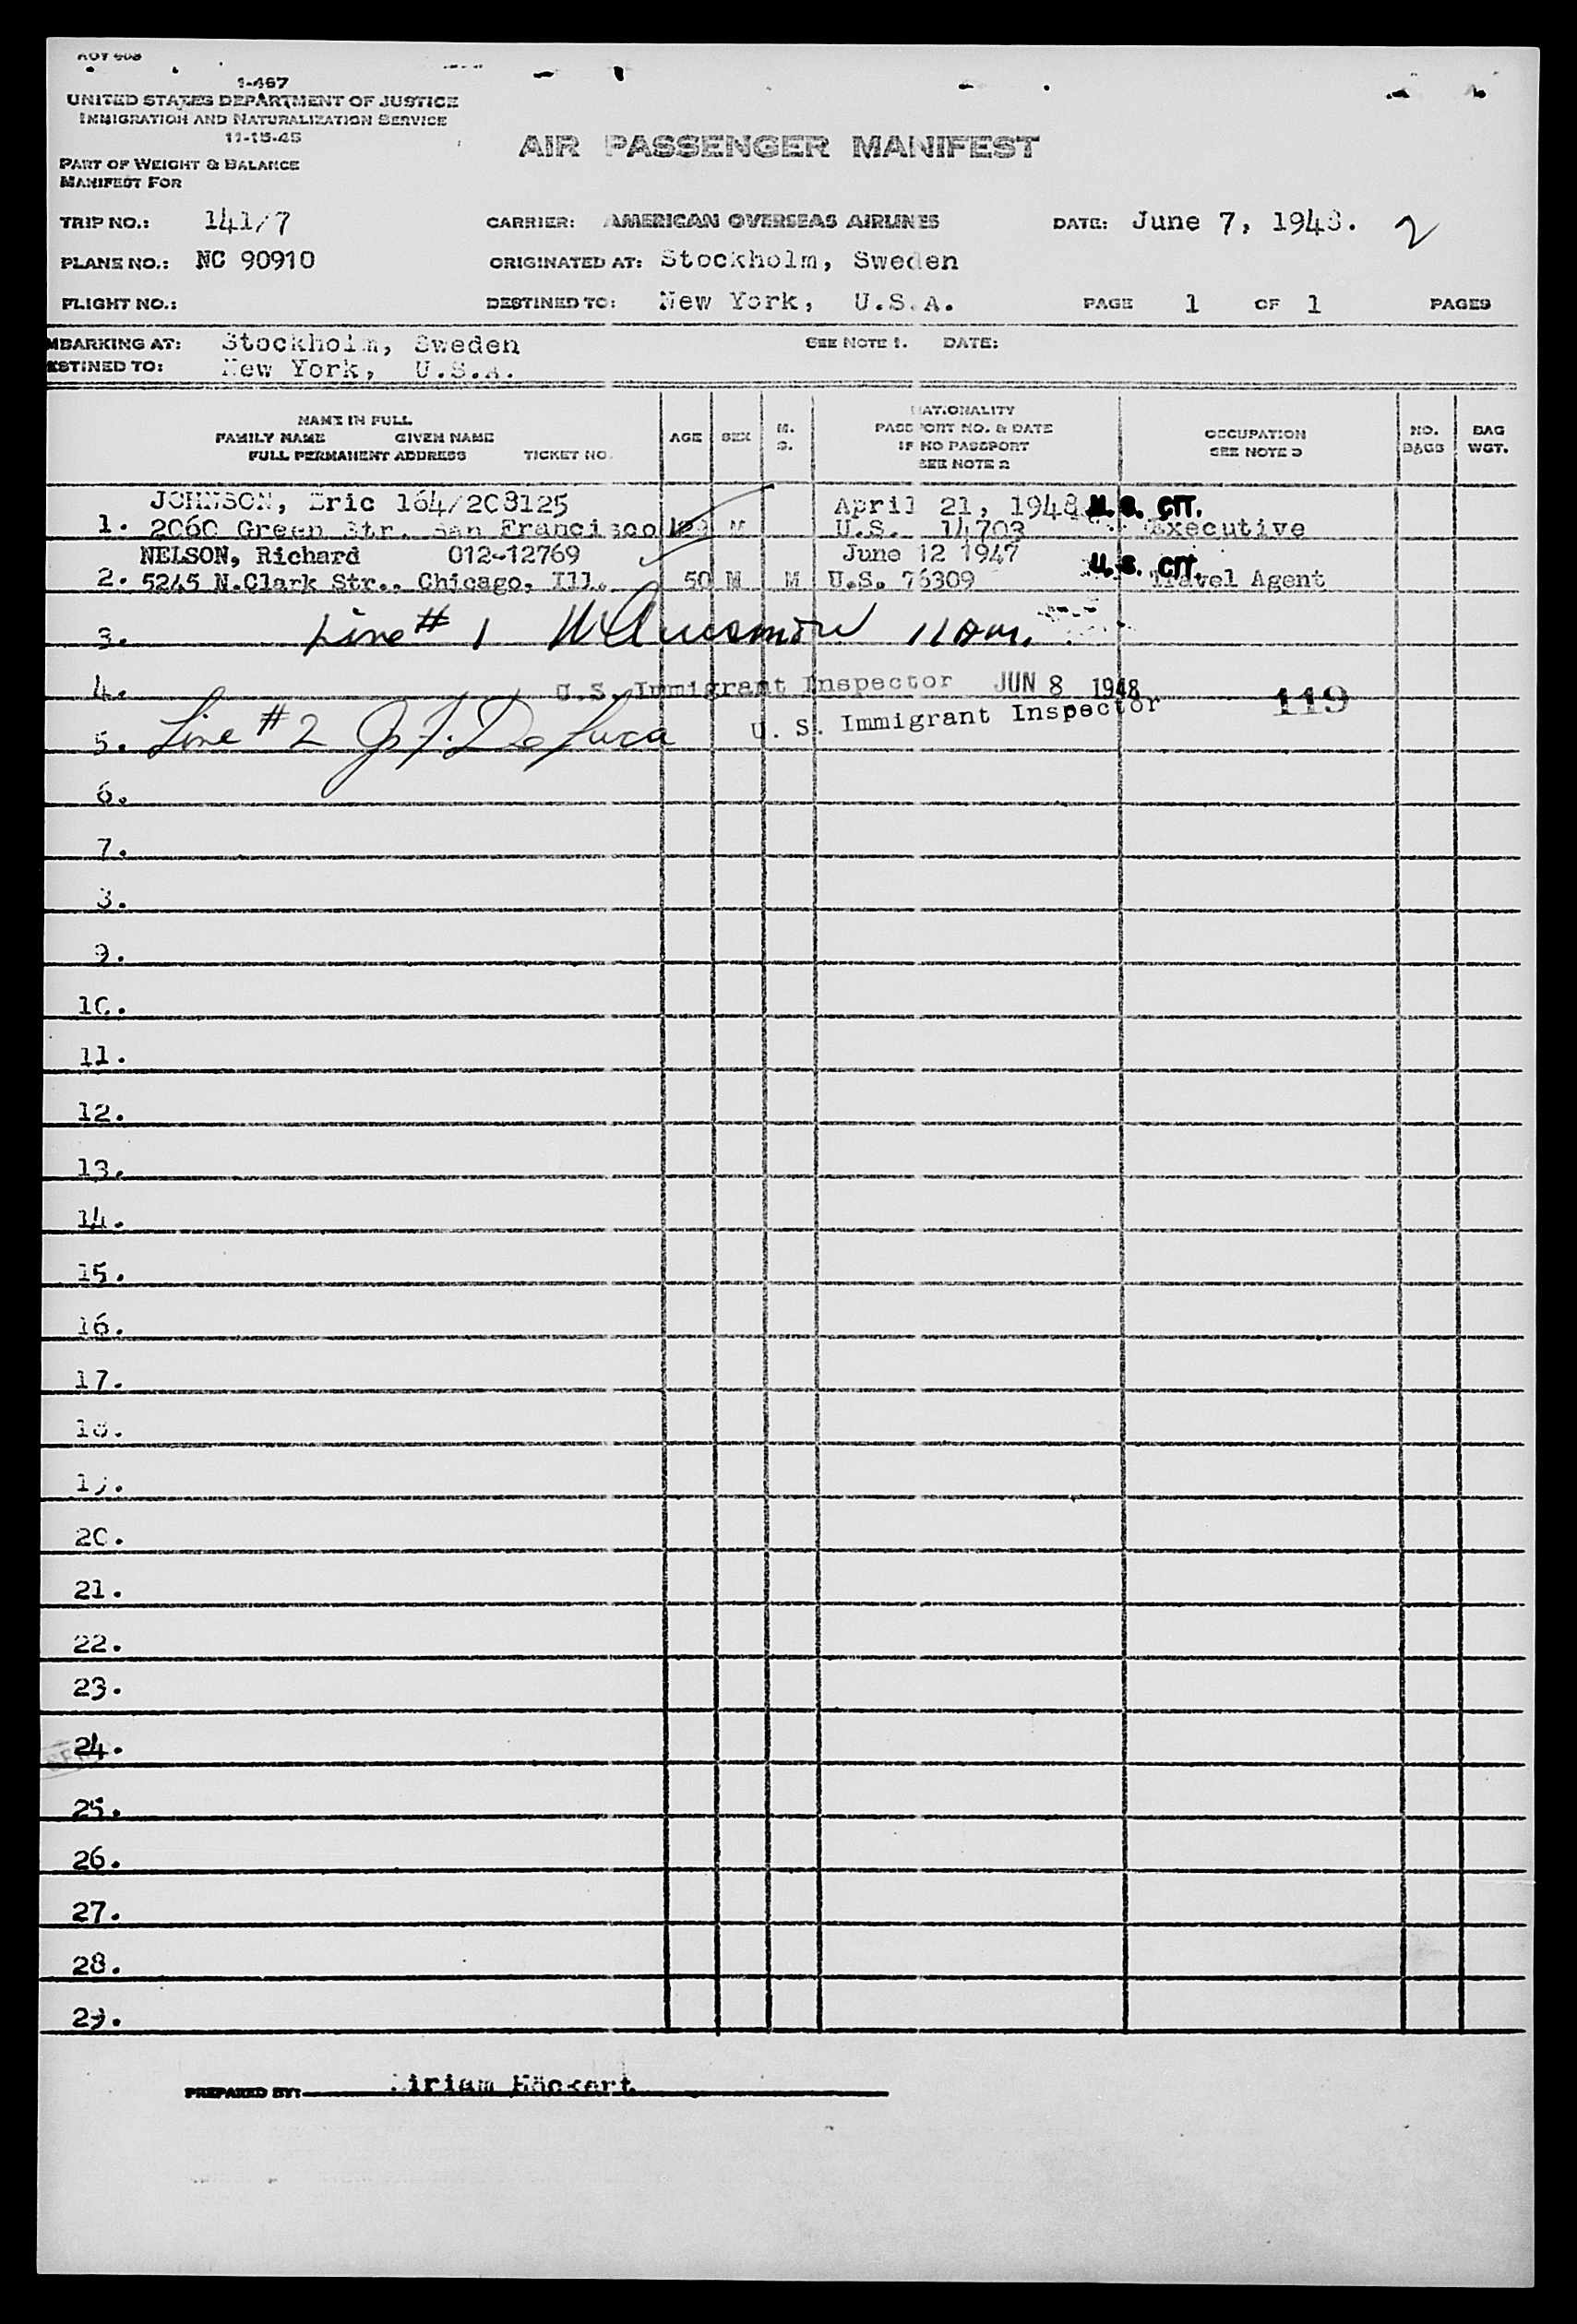 AOV 403
1-467
UNITED STATES DEPARTMENT OF JUSTICE
IMMIGRATION AND NATURALIZATION SERVICE
11-15-45
AIR PASSENGER MANIFEST
PART OF WEIGHT & BALANCE
MANIFEST FOR
TRIP NO.: 141/7 CARRIER: AMERICAN OVERSEAS AIRLINES DATE: June 7, 1948. 2
PLANE NO.: NC 90910 ORIGINATED AT: Stockholm, Sweden
FLIGHT NO.: DESTINED TO: New York, U.S.A. PAGE 1 OF 1 PAGES
MBARKING AT: Stockholm, Sweden SEE NOTE 1. DATE:
ESTINED TO: New York, U.S.A.
NAME IN FULL
FAMILY NAME GIVEN NAME
FULL PERMANENT ADDRESS TICKET NO.
AGE SEX M. S.
NATIONALITY
PASSPORT NO. & DATE
IF NO PASSPORT
SEE NOTE 2
OCCUPATION
SEE NOTE 3
NO. BAGS
BAG WGT.
JOHNSON, Eric 164/208125 April 21, 1948 U. S. CIT.
1. 2060 Green Str. San Francisco M U.S. 14703 Executive
NELSON, Richard 012-12769 June 12 1947 U. S. CIT.
2. 5245 N.Clark Str., Chicago, Ill. 50 M M U.S. 76309 Travel Agent
3. Line # 1 11 am.
4. U.S. Immigrant Inspector JUN 8 1948 119
5. Line # 2 De Luca U. S. Immigrant Inspector
6.
7.
8.
9.
10.
11.
12.
13.
14.
15.
16.
17.
18.
19.
20.
21.
22.
23.
24.
25.
26.
27.
28.
29.
PREPARED BY: Miriam Höckert